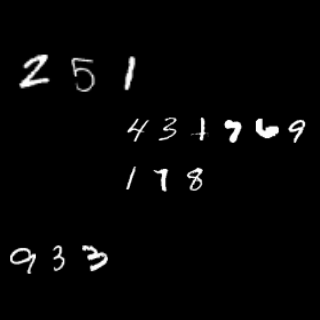 251
431769
178
933